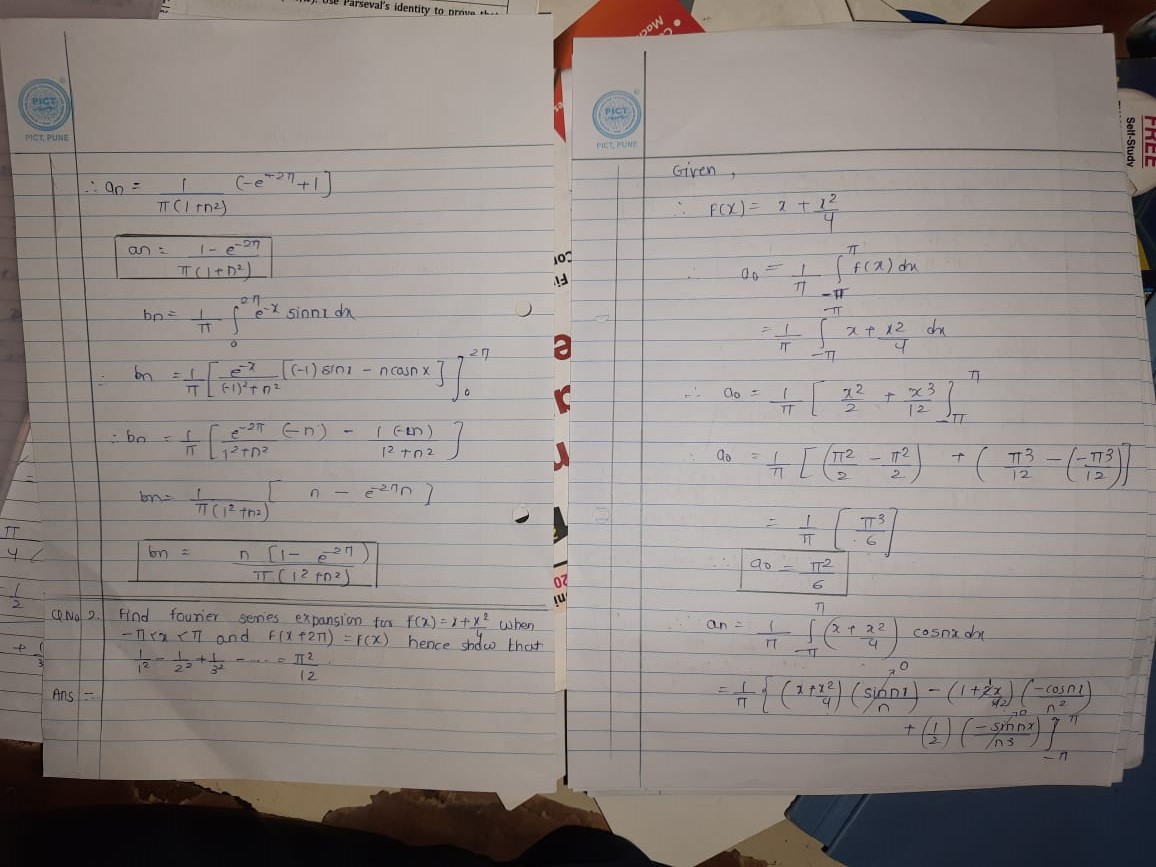 Use Parseval's identity to prove
PICT
PICT, PUNE
∴ an = 1/π(1+n²) (-e^-2π+1]
an = 1-e^-2π/π(1+n²)
bn = 1/π ∫₀^2π e^-x sinnx dx
∴ bn = 1/π [e^-x/(-1)²+n² [(-1) sinx - ncosnx]]₀^2π
∴ bn = 1/π [e^-2π/1²+n² (-n) - 1(-n)/1²+n²]
bn = 1/π(1²+n²) [n - e^-2π n]
bn = n[1-e^-2π)/π(1²+n²)
Q.No 2. Find fourier series expansion for f(x)=x+x²/4 when
-π<x<π and f(x+2π) = f(x) hence show that
1/1² - 1/2² + 1/3² - .... = π²/12
Ans :-
PICT
PICT, PUNE
Given,
∴ f(x) = x + x²/4
a₀ = 1/π ∫_-π^π f(x) dx
= 1/π ∫_-π^π x + x²/4 dx
∴ a₀ = 1/π [x²/2 + x³/12]_-π^π
∴ a₀ = 1/π [(π²/2 - π²/2) + (π³/12 - (-π³/12)]
= 1/π [π³/6]
∴ a₀ = π²/6
an = 1/π ∫_-π^π (x + x²/4) cosnx dx
= 1/π {(x+x²/4) (sinnx/n)→0 - (1+2x/4 2) (-cosnx/n²)
+ (1/2) (-sinnx/n³)→0]_-π^π
FREE
Self-Study